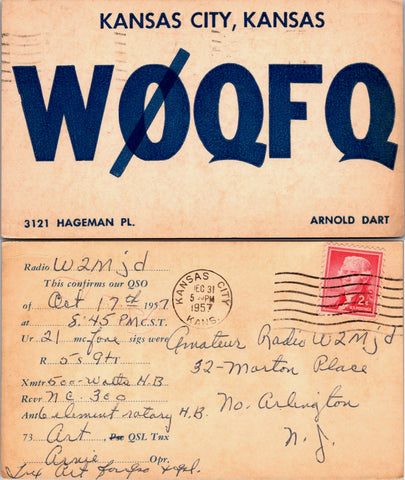 KANSAS CITY, KANSAS
WØQFQ
3121 HAGEMAN PL.
ARNOLD DART
Radio W2Mjd
This confirms our QSO
of Oct 17th 1957
at 8:45 P.M.C.S.T.
Ur 21 mc fone sigs were
R 5 S 9 T
Xmtr 500-Watts H.B.
Rcvr NC. 300
Ant 6 element rotary H.B.
73 Art Pse QSL Tnx
Arnie Opr.
Tnx Art
KANSAS CITY
DEC 31
5 PM
1957
KANS.
2¢
Amateur Radio W2Mjd
32-Morton Place
No. Arlington
N.J.